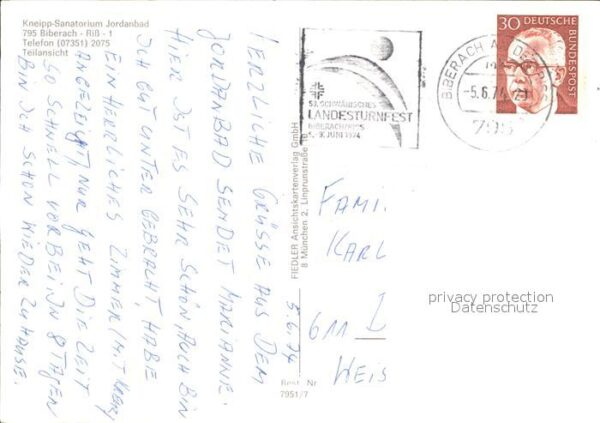 Kneipp-Sanatorium Jordanbad
795 Biberach - Riß - 1
Telefon (07351) 2075
Teilansicht
HERZLICHE GRÜSSE AUS DEM
JORDANBAD SENDET MARIANNE.
HIER IST ES SEHR SCHÖN, AUCH BIN
ICH GUT UNTER GEBRACHT, HABE
EIN HERRLICHES ZIMMER (MIT
ANGEZEIGT) NUR GEHT DIE ZEIT
SO SCHNELL VORBEI, IN 8 TAGEN
BIN ICH SCHON WIEDER ZU HAUSE.
5.6.74
FIEDLER Ansichtskartenverlag GmbH
8 München 2, Linprunstraße
Best. Nr.
7951/7
53. SCHWÄBISCHES
LANDESTURNFEST
BIBERACH/RISS
5.-9. JUNI 1974
BIBERACH AN DER RISS
-5.6.74
795
30 DEUTSCHE
BUNDESPOST
FAMI.
KARL
611 I
WEIS
privacy protection
Datenschutz